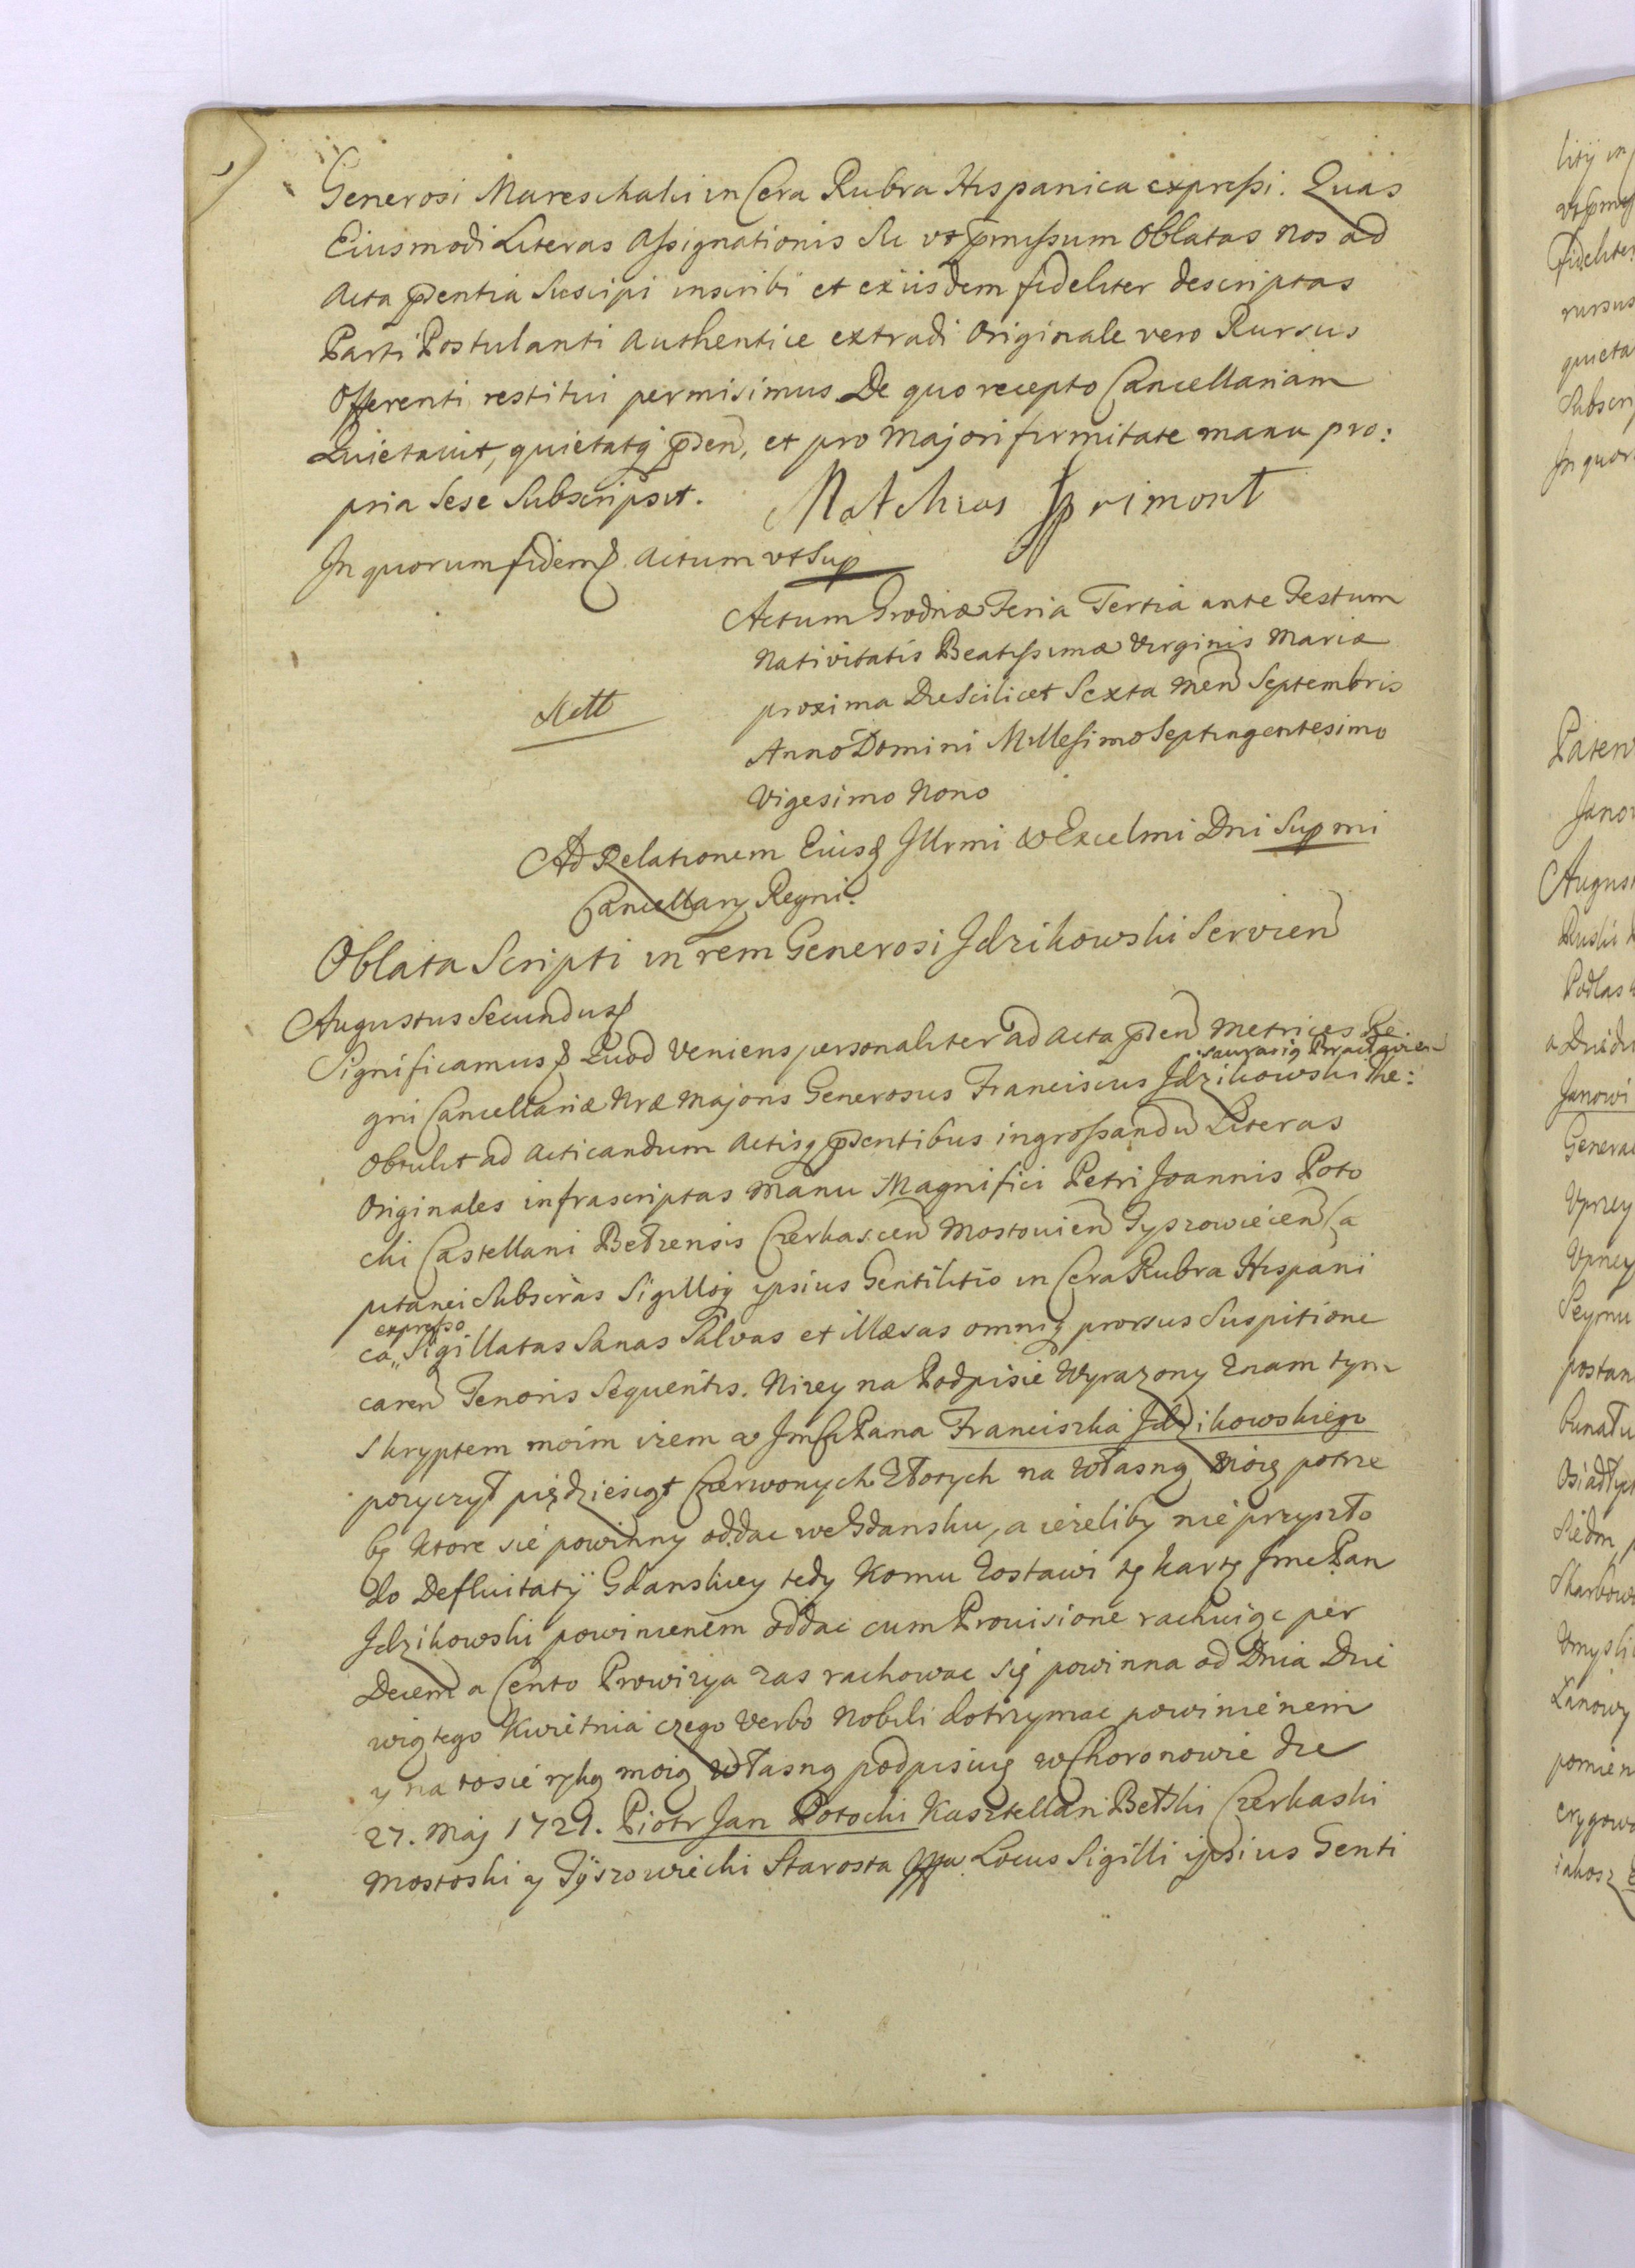 Generosi Mareschalii in Cera Rubra Hispanica expreßi. Quas
Eiusmodi Literas Aßignationis Sic vt pmißum Oblatas nos ad
Acta pñentia Suscipi inscribi et exiisdem fideliter descriptas
Parti Postulanti Authentice extradi Originale vero Rursus
Offerenti restitui permisimus De quo recepto Cancellariam
Quietavit, quietatq pñen, et pro Majori firmitate manu pro:
pria Sese Subscripsit. Mathias
In quorum fidem Actum vt Sup
Actum Grodnæ Feria Tertia ante Festum
Nativitatis Beatißimæ Virginis Mariæ
proxima Die Scilicet Sexta Men Septembris
Anno Domini Millesimo Septingentesimo
Vigesimo Nono
Ad Relationem Eiusd Illrmi & Excelmi Dni Supmi
Cancellarij Regni.
Oblata Scripti in rem Generosi Idzikowski Servien
Augustus Secundus
Significamus Quod Veniens personaliter ad Acta pñen Metrices Re
gni Cancellariæ Nræ Majoris Generosus Franciscus Idzikowski The:
saurariq
Obtulit ad Acticandum Actisq pñentibus ingroßandũ Literas
Originales infrascriptas Manu Magnifici Petri Joannis Poto
cki Castellani Bełzensis Czerkascen Mostovien Tyszowiecen Ca
pitanei Subscras Sigilloq ipsius Gentilitio in Cera Rubra Hispani
expreßo
ca„ Sigillatas Sanas Salvas et illæsas omniq prorsus Suspitione
caren Tenoris Sequentis. Nizey na Podpisie Wyrazony Znam tym
Skryptem moim izem u Jmści Pana Franciszka Idzikowskiego
pozyczył piędziesiąt Czerwonych Złotych na Własną Moię potrze
bę ktore sie powinny oddac we Gdansku, a iezeliby nie przyszło
do Defluitatij Gdanskiey tedy Komu Zostawi tę kartę Jmc Pan
Idzikowski powinienem oddac cum Prouisione rachuiąc per
Decem a Cento Prowizya zas rachowac się powinna od Dnia Dzie
wiątego Kwietnia czego Verbo Nobili dotrzymac powinienem
y na tosie ręką moią Własną podpisuię w Choronowie die
27. Maj 1729. Piotr Jan Potocki Kasztellan Bełzki Czerkaski
Mostoski y Tÿszowiecki Starosta Locus Sigilli ipsius Genti